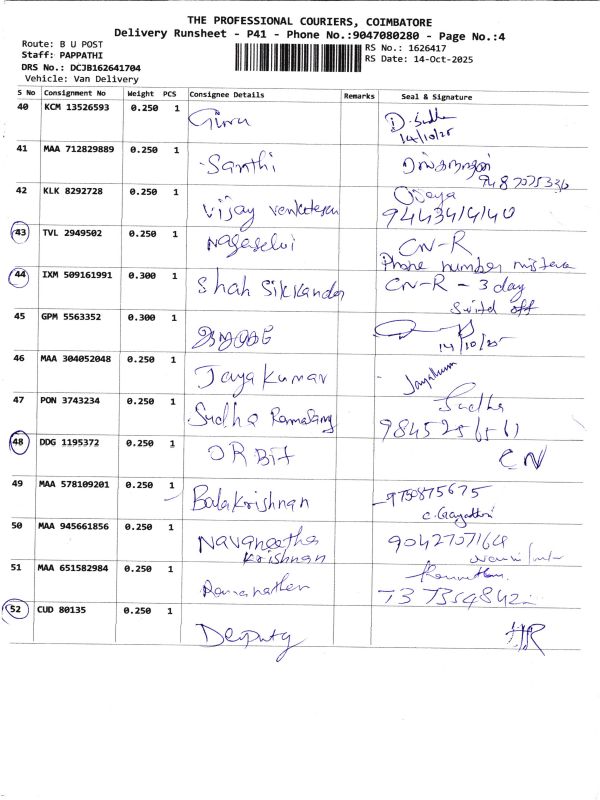 THE PROFESSIONAL COURIERS, COIMBATORE
Delivery Runsheet - P41 - Phone No.:9047080280 - Page No.:4
Route: B U POST
RS No.: 1626417
Staff: PAPPATHI
RS Date: 14-Oct-2025
DRS No.: DCJB162641704
Vehicle: Van Delivery
S No Consignment No Weight PCS Consignee Details Remarks Seal & Signature
40 KCM 13526593 0.250 1
14/10/25
41 MAA 712829889 0.250 1 Santhi
42 KLK 8292728 0.250 1 Vijay Venkatesan
43 TVL 2949502 0.250 1 Nagaselvi CN-R
Phone number mistera
44 IXM 509161991 0.300 1 Shah Sikkander CN-R - 3 day
Switd off
45 GPM 5563352 0.300 1
14/10/25
46 MAA 304052048 0.250 1 Jaya Kumar
47 PON 3743234 0.250 1 Sudha Ramalang Sudha
48 DDG 1195372 0.250 1 ORBit CN
49 MAA 578109201 0.250 1 Balakrishnan 9750875675
C. Gayathri
50 MAA 945661856 0.250 1 Navaneetha
Krishnan
51 MAA 651582984 0.250 1 Ramanathan
52 CUD 80135 0.250 1 Deputy HR